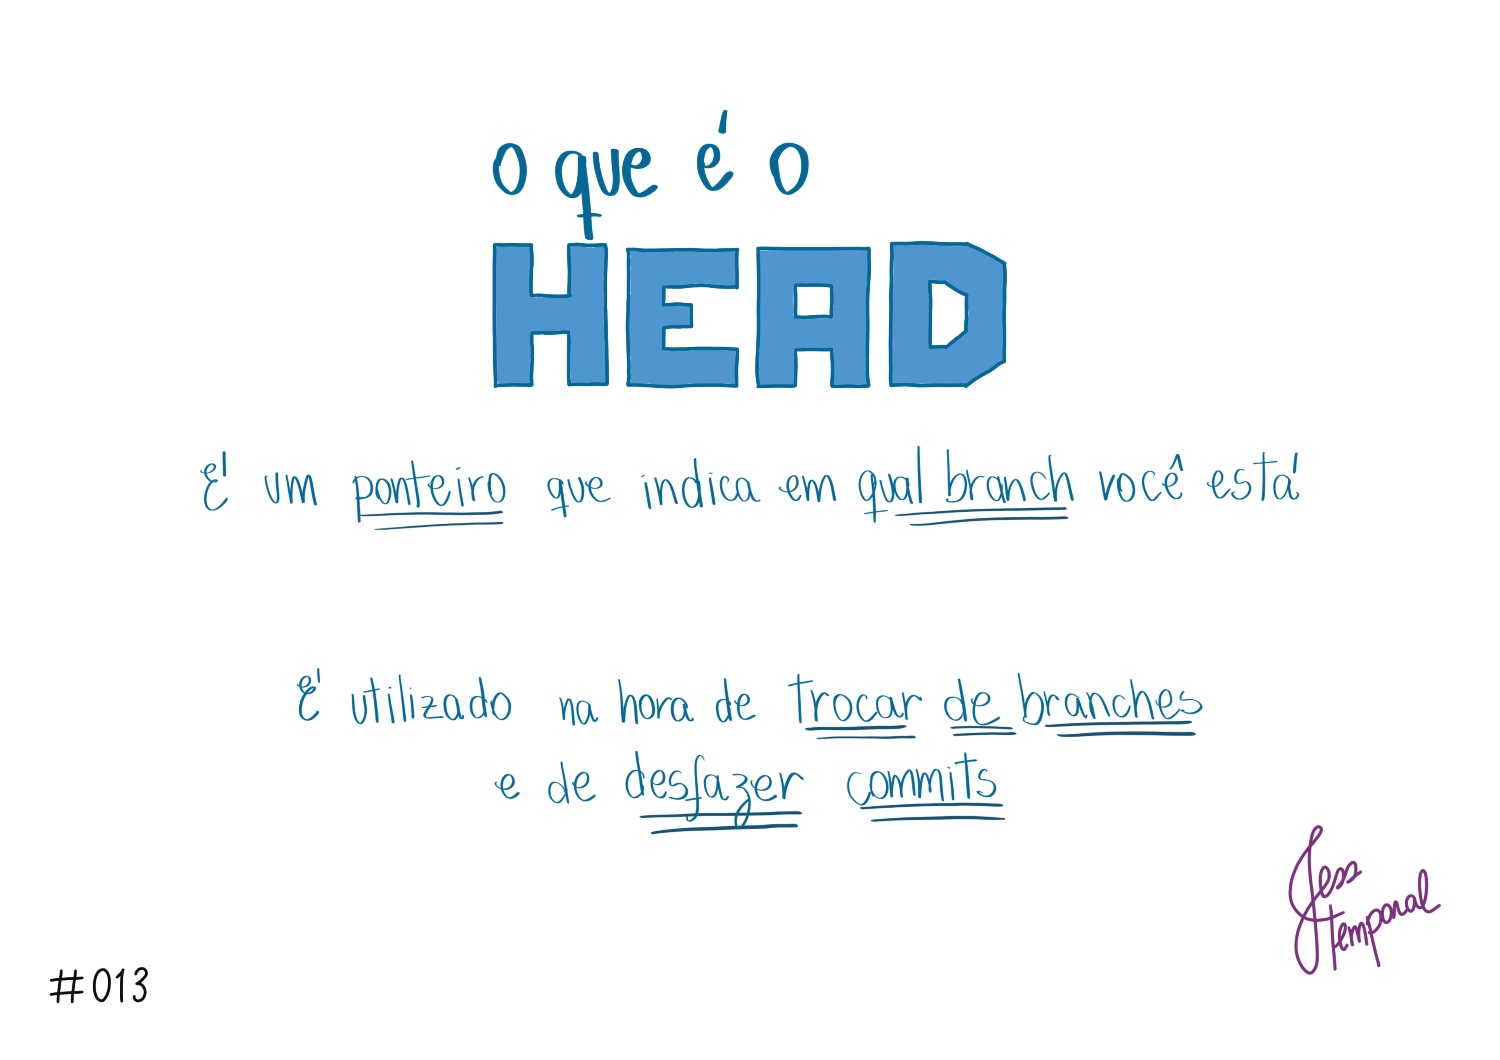 o que é o
HEAD
É um ponteiro que indica em qual branch você está
É utilizado na hora de trocar de branches
e de desfazer commits
Jess
temporal
#013